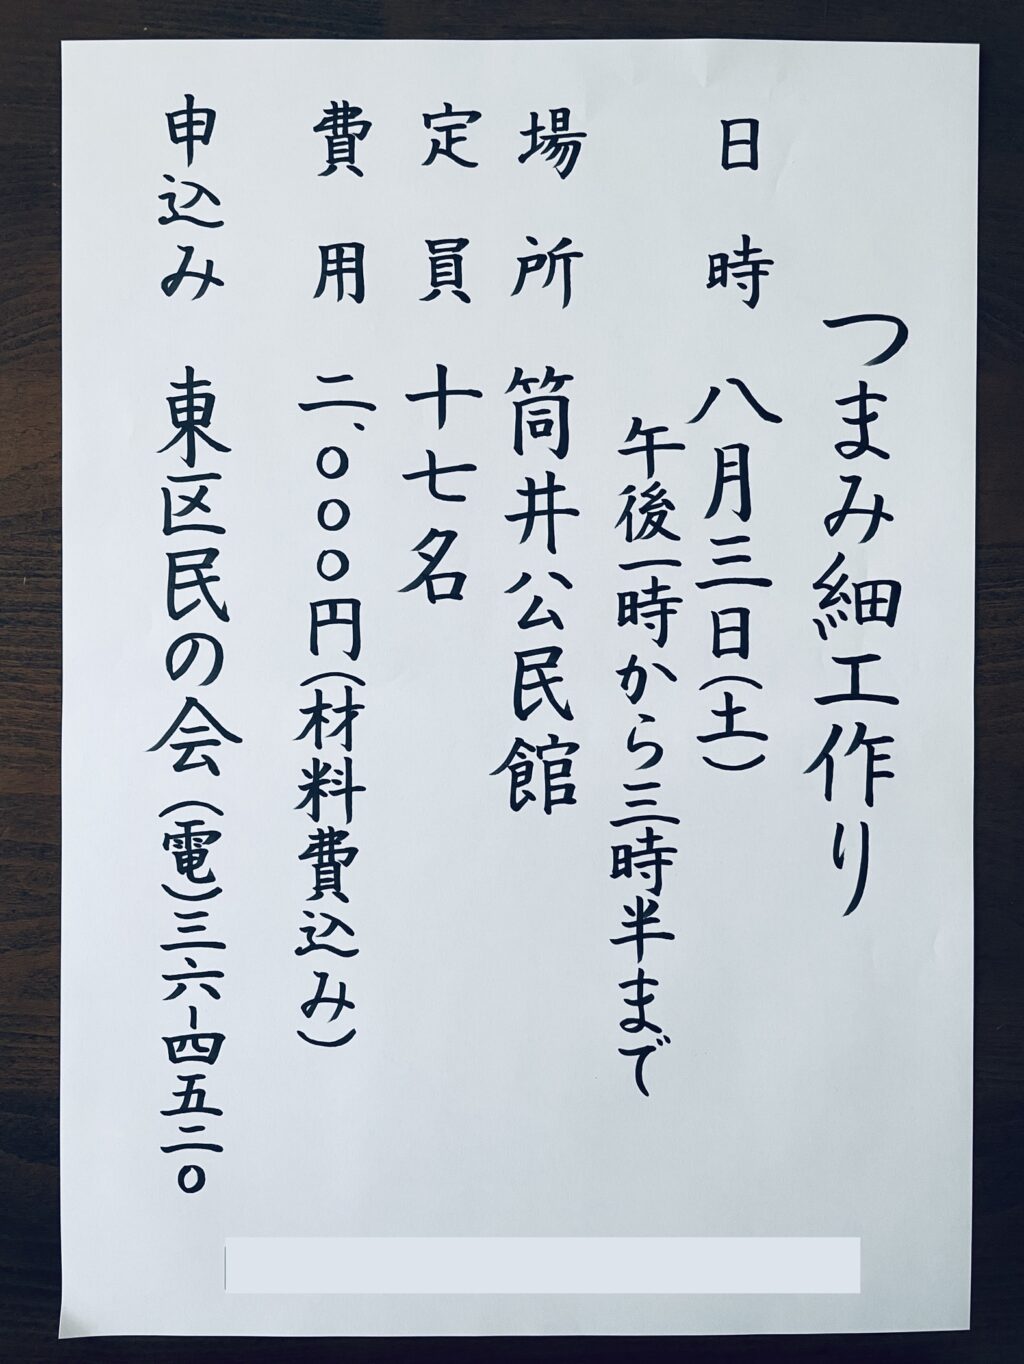 つまみ細工作り
日時 八月三日(土)
午後一時から三時半まで
場所 筒井公民館
定員 十七名
費用 二、〇〇〇円(材料費込み)
申込み 東区民の会(電)三六-四五二〇